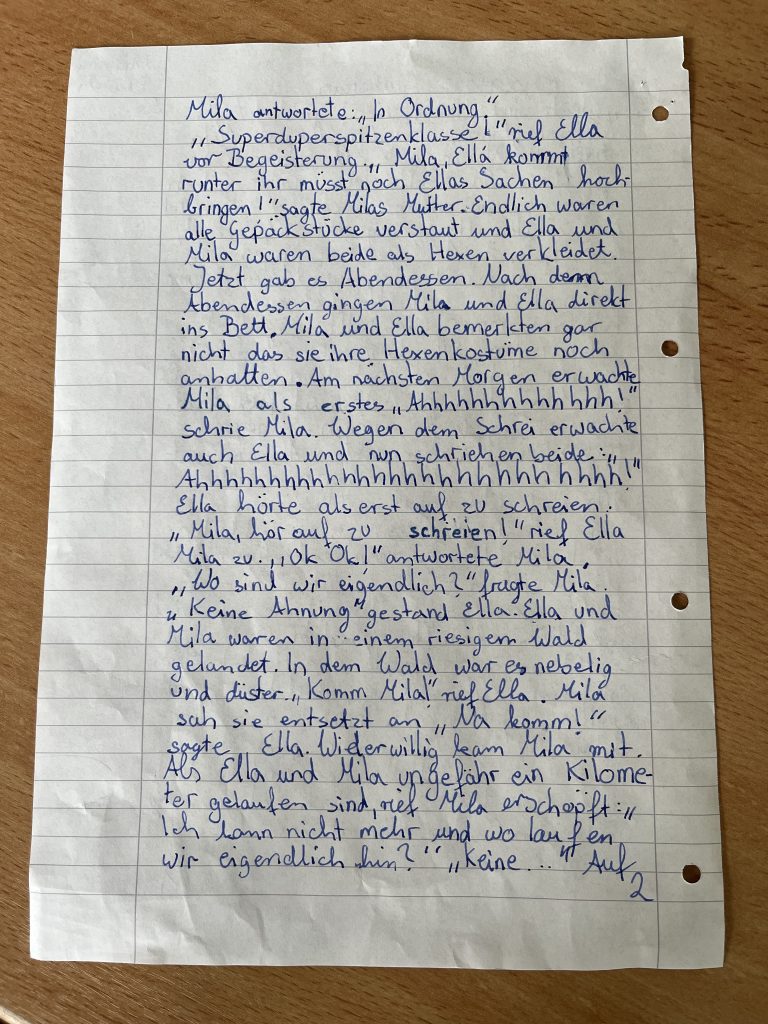 Mila antwortete: „In Ordnung“
„Superduperspitzenklasse!“ rief Ella
vor Begeisterung. „Mila, Ella kommt
runter ihr müsst noch Ellas Sachen hoch-
bringen!“ sagte Milas Mutter. Endlich waren
alle Gepäckstücke verstaut und Ella und
Mila waren beide als Hexen verkleidet.
Jetzt gab es Abendessen. Nach dem
Abendessen gingen Mila und Ella direkt
ins Bett. Mila und Ella bemerkten gar
nicht das sie ihre Hexenkostüme noch
anhatten. Am nächsten Morgen erwachte
Mila als erstes „Ahhhhhhhhhhhhh!“
schrie Mila. Wegen dem Schrei erwachte
auch Ella und nun schriehen beide: „
Ahhhhhhhhhhhhhhhhhhhhhhhhhhh!“
Ella hörte als erst auf zu schreien.
„Mila, hör auf zu schreien!“ rief Ella
Mila zu. „Ok Ok!“ antwortete Mila.
„Wo sind wir eigendlich?“ fragte Mila.
„Keine Ahnung“ gestand Ella. Ella und
Mila waren in einem riesigem Wald
gelandet. In dem Wald war es nebelig
und düster. „Komm Mila!“ rief Ella. Mila
sah sie entsetzt an „Na komm!“
sagte Ella. Wiederwillig kam Mila mit.
Als Ella und Mila ungefähr ein Kilome-
ter gelaufen sind, rief Mila erschöpft: „
Ich kann nicht mehr und wo laufen
wir eigendlich hin?“ „Keine ...“ Auf
2